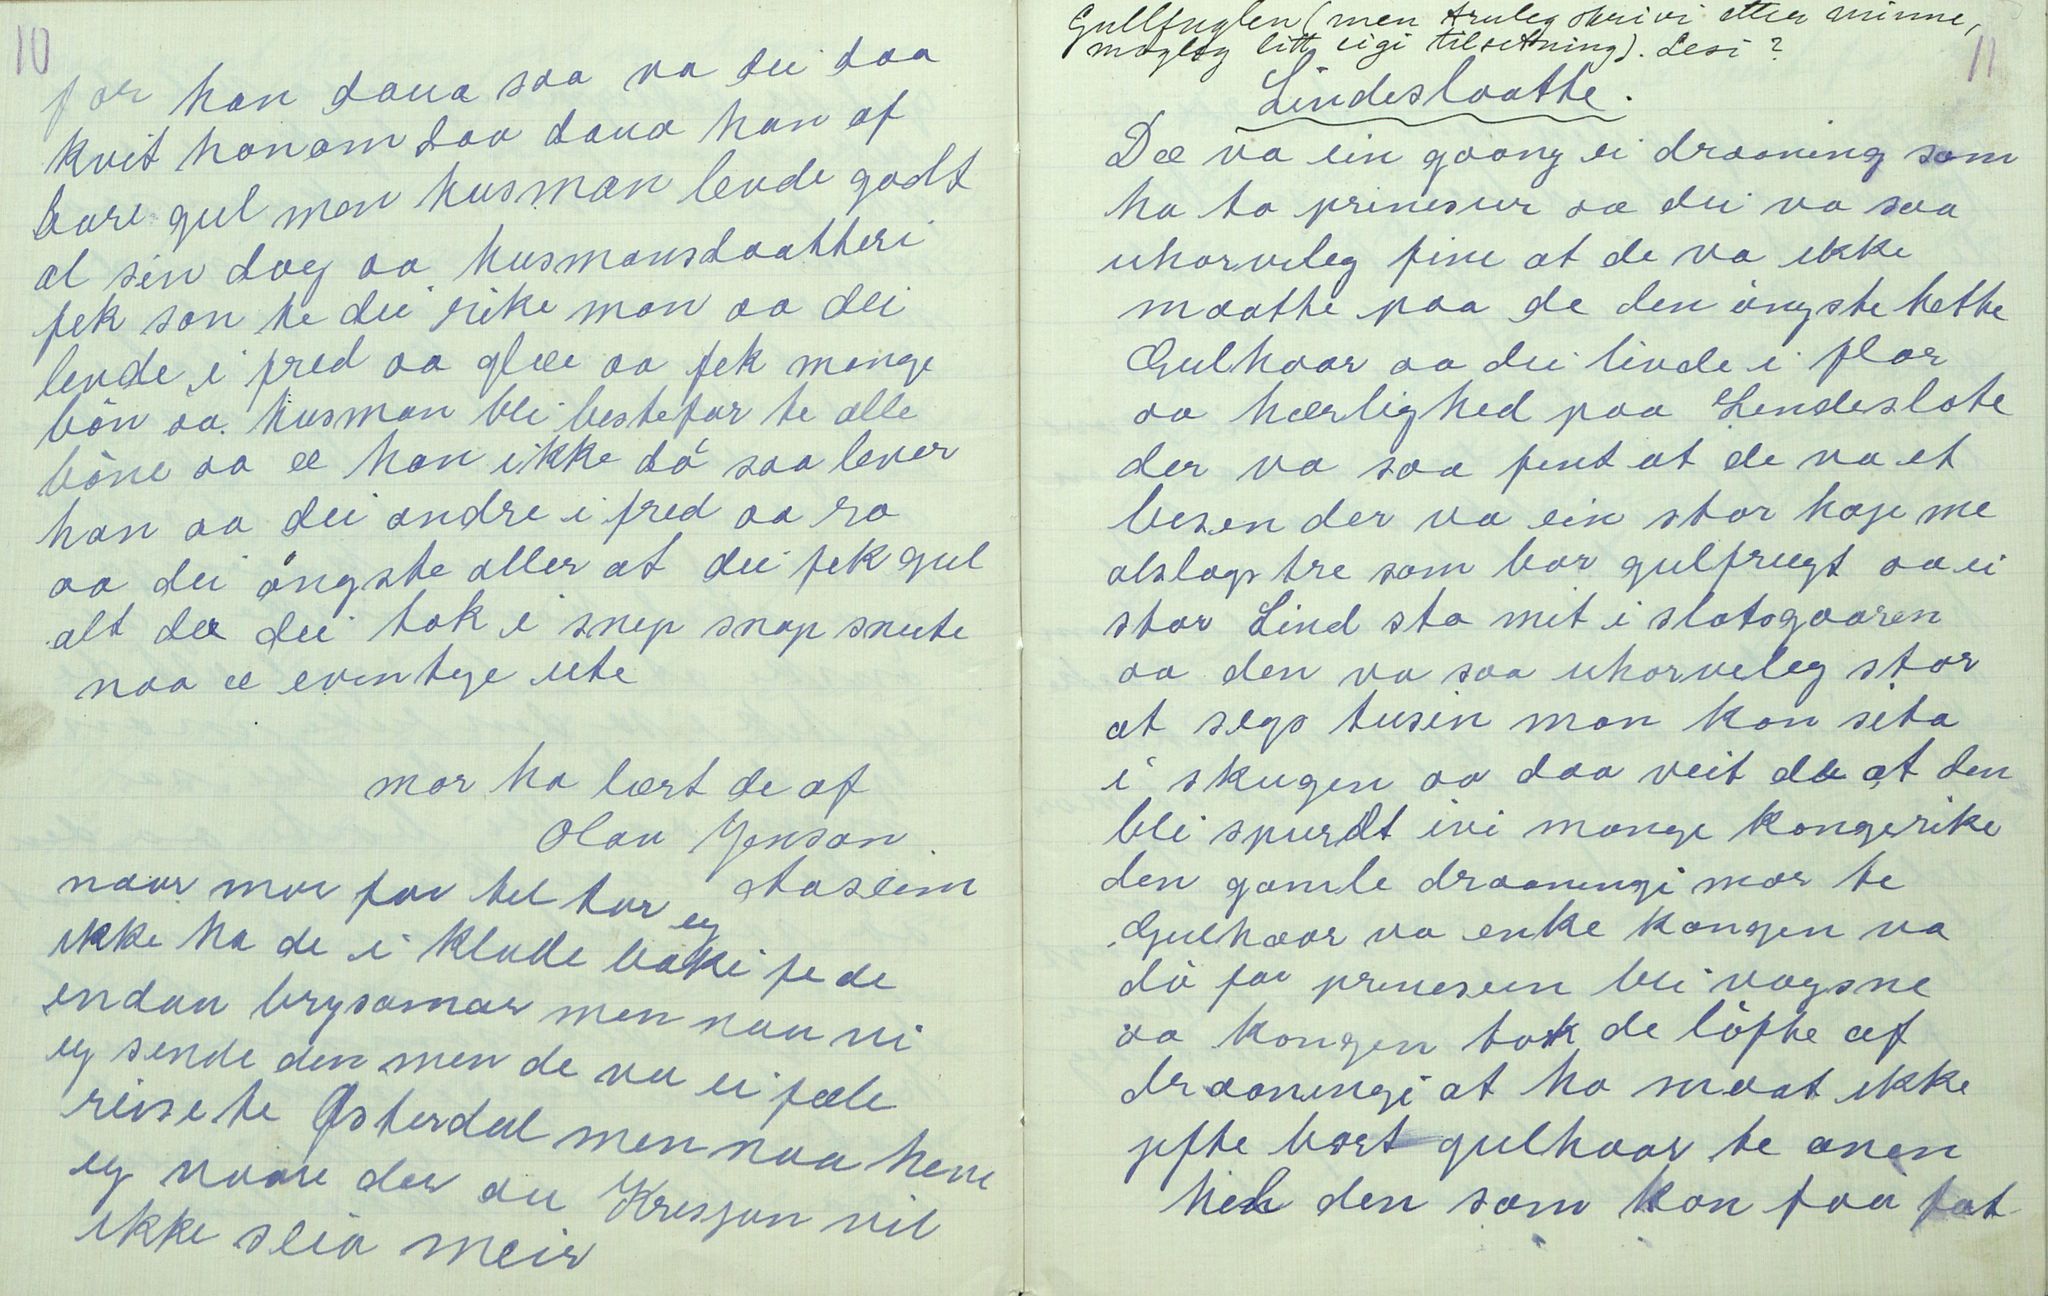 10
for han daua saa va dei daa
kvit honom daa daua han af
bare gul men husman levde godt
al sin dag aa husmansdaatteri
fek son te dei rike man aa dei
levde i fred aa glæe aa fek mange
bön aa husman blei bestefar te alle
böne aa æ han ikke dö saa lever
han aa dei andre i fred aa ro
aa dei öngste aller at dei fek gul
alt dæ dei tok i snip snap snute
naa æ eventye ute
mor ha lært de af
Olav Jenson
Aaseim
naar mor far til tor eg
ikke ha de i klade baki fe de
endau brysomar men naa vi
eg sende den men de va ei fæle
reise te Østerdal men naa heve
eg vaare der au Kresjan vil
ikke sleia meir
Gullfuglen (men truleg skrivi etter minne,
mogleg litt eigi tilsetning). Lesi?
11
Lindeslaatte.
Dæ va ein goong ei draaning som
ha to prinsesur aa dei va saa
uhorveleg fine at de va ikke
maatte paa de den öngste hette
Gulhaar aa dei livde i flor
aa hærlighed paa Lindeslote
der va saa fint at de va et
besen der va ein stor hage me
alslags tre som bar gulfrugt aa ei
stor Lind sto mit i slotsgaaren
aa den va saa uhorveleg stor
at segs tusin man kon sita
i skugen aa daa veit dæ at den
blei spurdt ivi mange kongerike
den gamle draaningi mor te
Gulhaar va enke kongen va
dö før prinsesun blei vogsne
aa kongen tok de löfte af
draaningi at ho maat ikke
jifte bort gulhaar te anen
hell den som kon faa fat